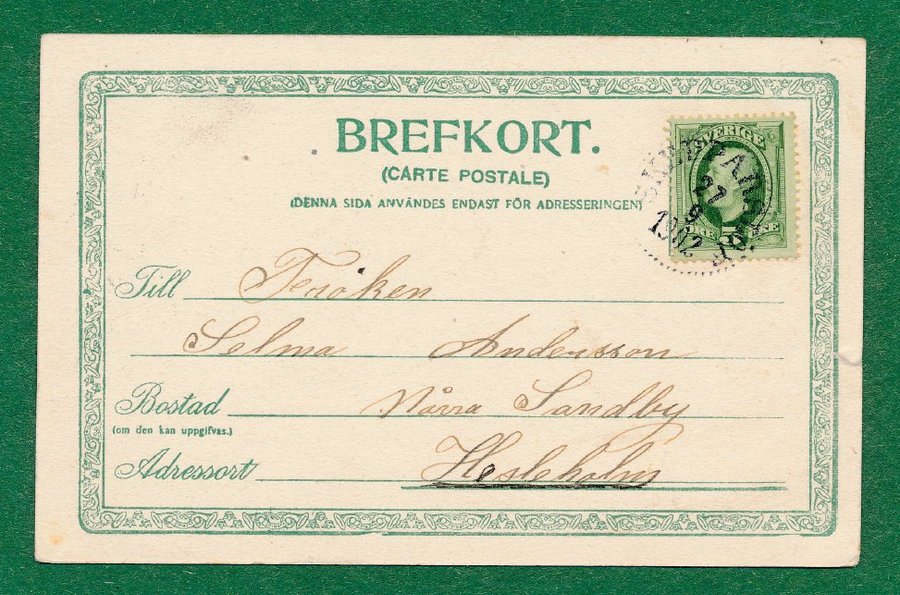 BREFKORT.
(CARTE POSTALE)
(DENNA SIDA ANVÄNDES ENDAST FÖR ADRESSERINGEN)
SVERIGE
27
9
1902
5
Till Fröken
Selma Andersson
Bostad Norra Sandby
(om den kan uppgifvas.)
Adressort Hesleholm